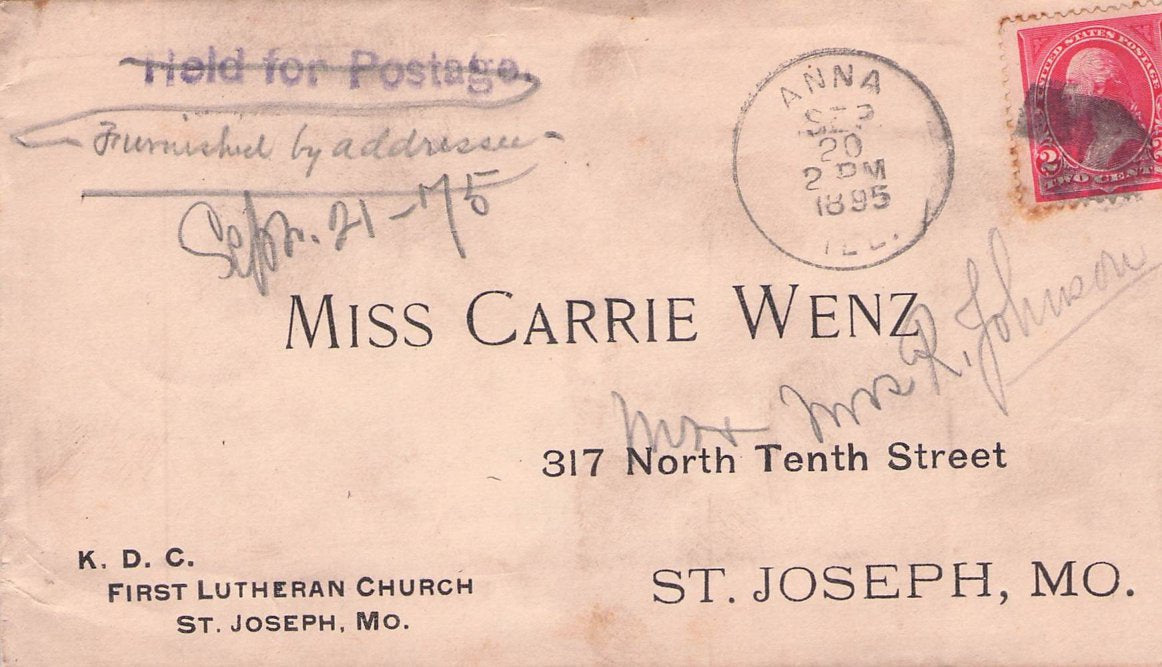 Held for Postage.
Furnished by addressee
Sept. 21-
ANNA
SEP
20
2 PM
1895
ILL.
UNITED STATES POSTAGE
2
TWO CENTS
MISS CARRIE WENZ
Mrs R. Johnson
317 North Tenth Street
K. D. C.
FIRST LUTHERAN CHURCH
ST. JOSEPH, MO.
ST. JOSEPH, MO.